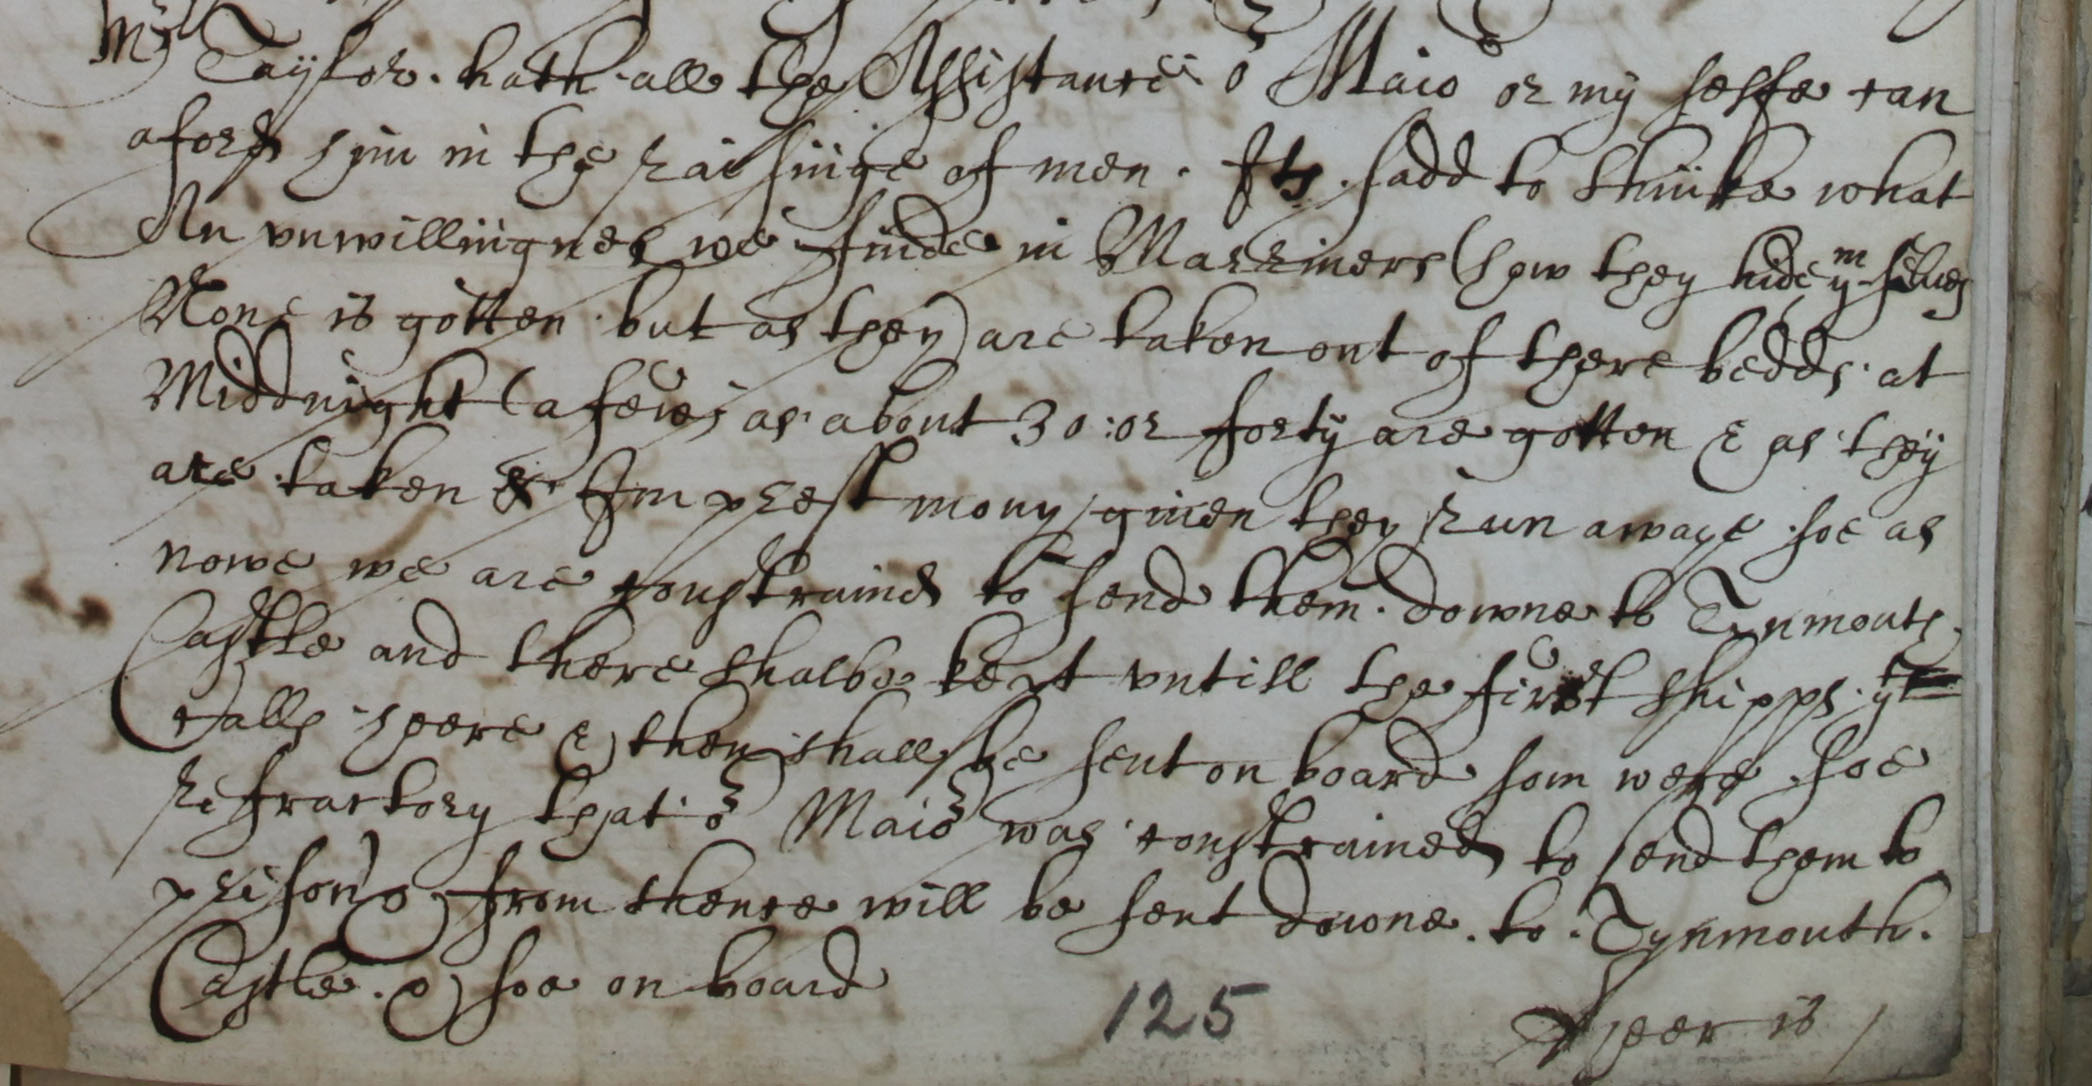 Mr
Taylor. hath all the Assistance or Maior or my selfe can
aford hjm in the raisinge of men. Its sadd to thinke what
An vnwillingnes we finde in Marriners (how they hide ym selues
None is gotten but as they) are taken out of there bedds at
Middnight (a few) as about 30: or forty are gotten & as they
are taken & Imprest mony given they run awaye soe as
nowe we are constrained to send them downe to Tynmouth
Castle and there shalbe kept vntill the first shipps yt
calls heere & then shall be sent on board som were soe
refractory that or Maior was constrained to send them to
prison & from thence will be sent downe. to. Tynmouth.
Castle. & soe on board
125
Heer is